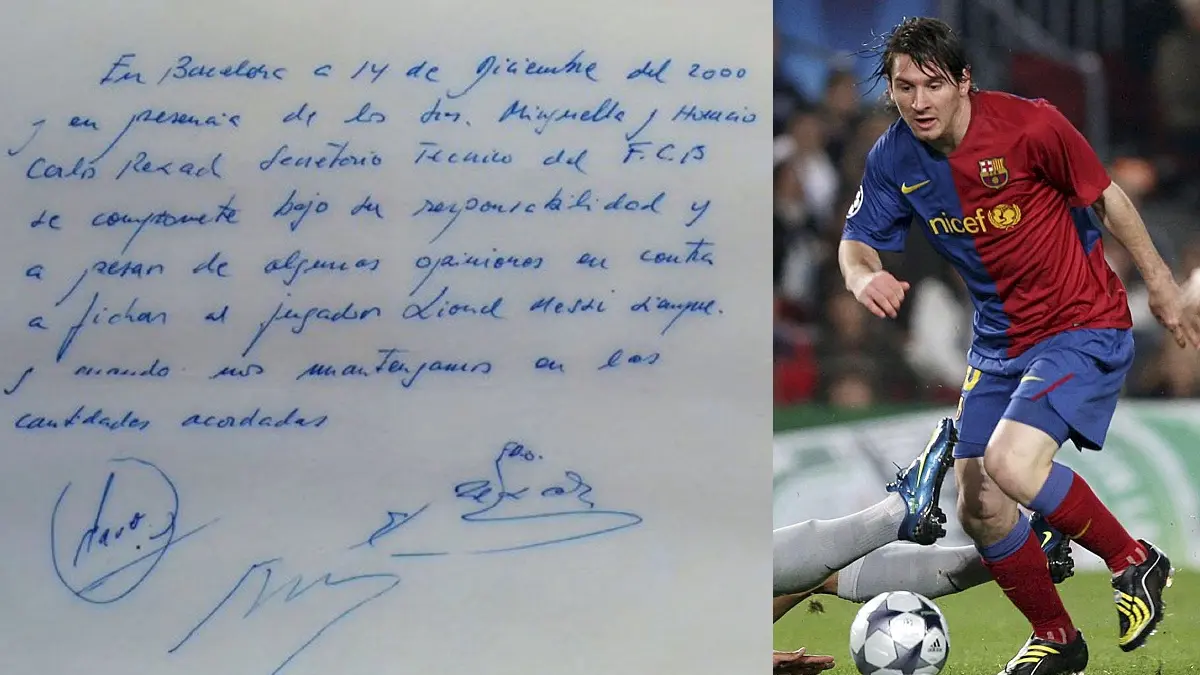 En Barcelona a 14 de Diciembre del 2000
y en presencia de los Sres. Minguella y Horacio
Carlos Rexach Secretario Tecnico del F.C.B
se compromete bajo su responsabilidad y
a pesar de algunas opiniones en contra
a fichar al jugador Lionel Messi siempre
y cuando nos mantengamos en las
cantidades acordadas
unicef
adidas